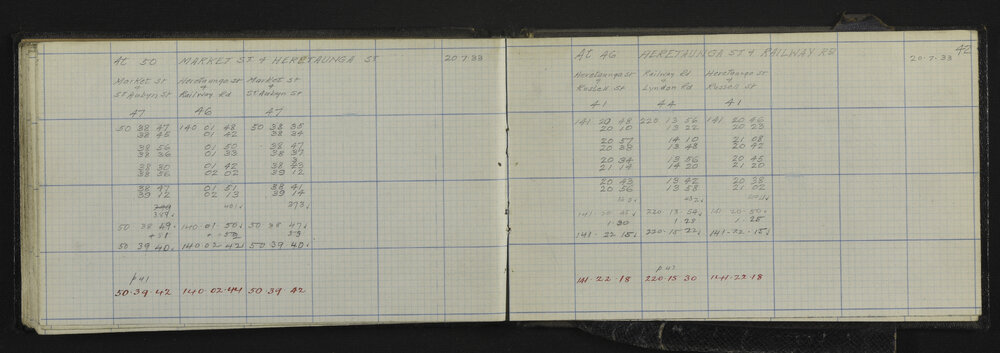 At 50 MARKET ST & HERETAUNGA ST 20.7.33
Market St Heretaunga St Market St
& & &
St Aubyn St Railway Rd St Aubyn St
47 46 47
50 38 47 140 01 48 50 38 35
38 45 01 42 38 34
38 56 01 50 38 47
38 36 01 33 38 37
38 30 01 42 38
38 36 02 02 39 12
38 47 01 51 38 41
39 12 02 13 39 14
389 401 373
50 38 49 140 01 50 50 38 47
50 39 40 140 02 42 50 39 40
p41
50.39.42 140.02.44 50.39.42
42
At 46 HERETAUNGA ST & RAILWAY RD 20.7.33
Heretaunga St Railway Rd Heretaunga St
& & &
Russell St Lyndon Rd Russell St
41 44 41
141 20 48 220 13 56 141 20 46
20 10 13 22 20 23
20 57 14 10 21 08
20 38 13 48 20 42
20 34 13 56 20 45
21 14 14 20 21 20
20 43 13 42 20 38
20 56 13 58 21 02
141 20 45 220.13.54 141 20.50
1.30 1.28 1.25
141.22 15 220.15 22 141.22.15
p43
141.22.18 220.15 30 141.22.18